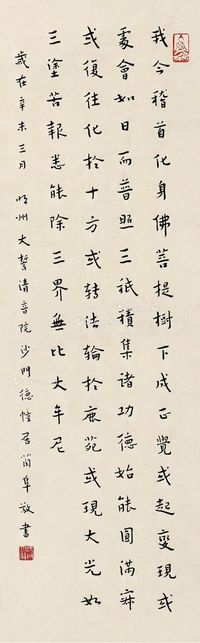 我今稽首化身佛菩提樹下成正覺或起變現或
處會如日而普照三祇積集諸功德始能圓滿寂
或復往化於十方或轉法輪於鹿苑或現大光如
三塗苦報悉能除三界無比大牟尼
歲在辛未三月 明州大誓清音院沙門德惟居簡阜敬書